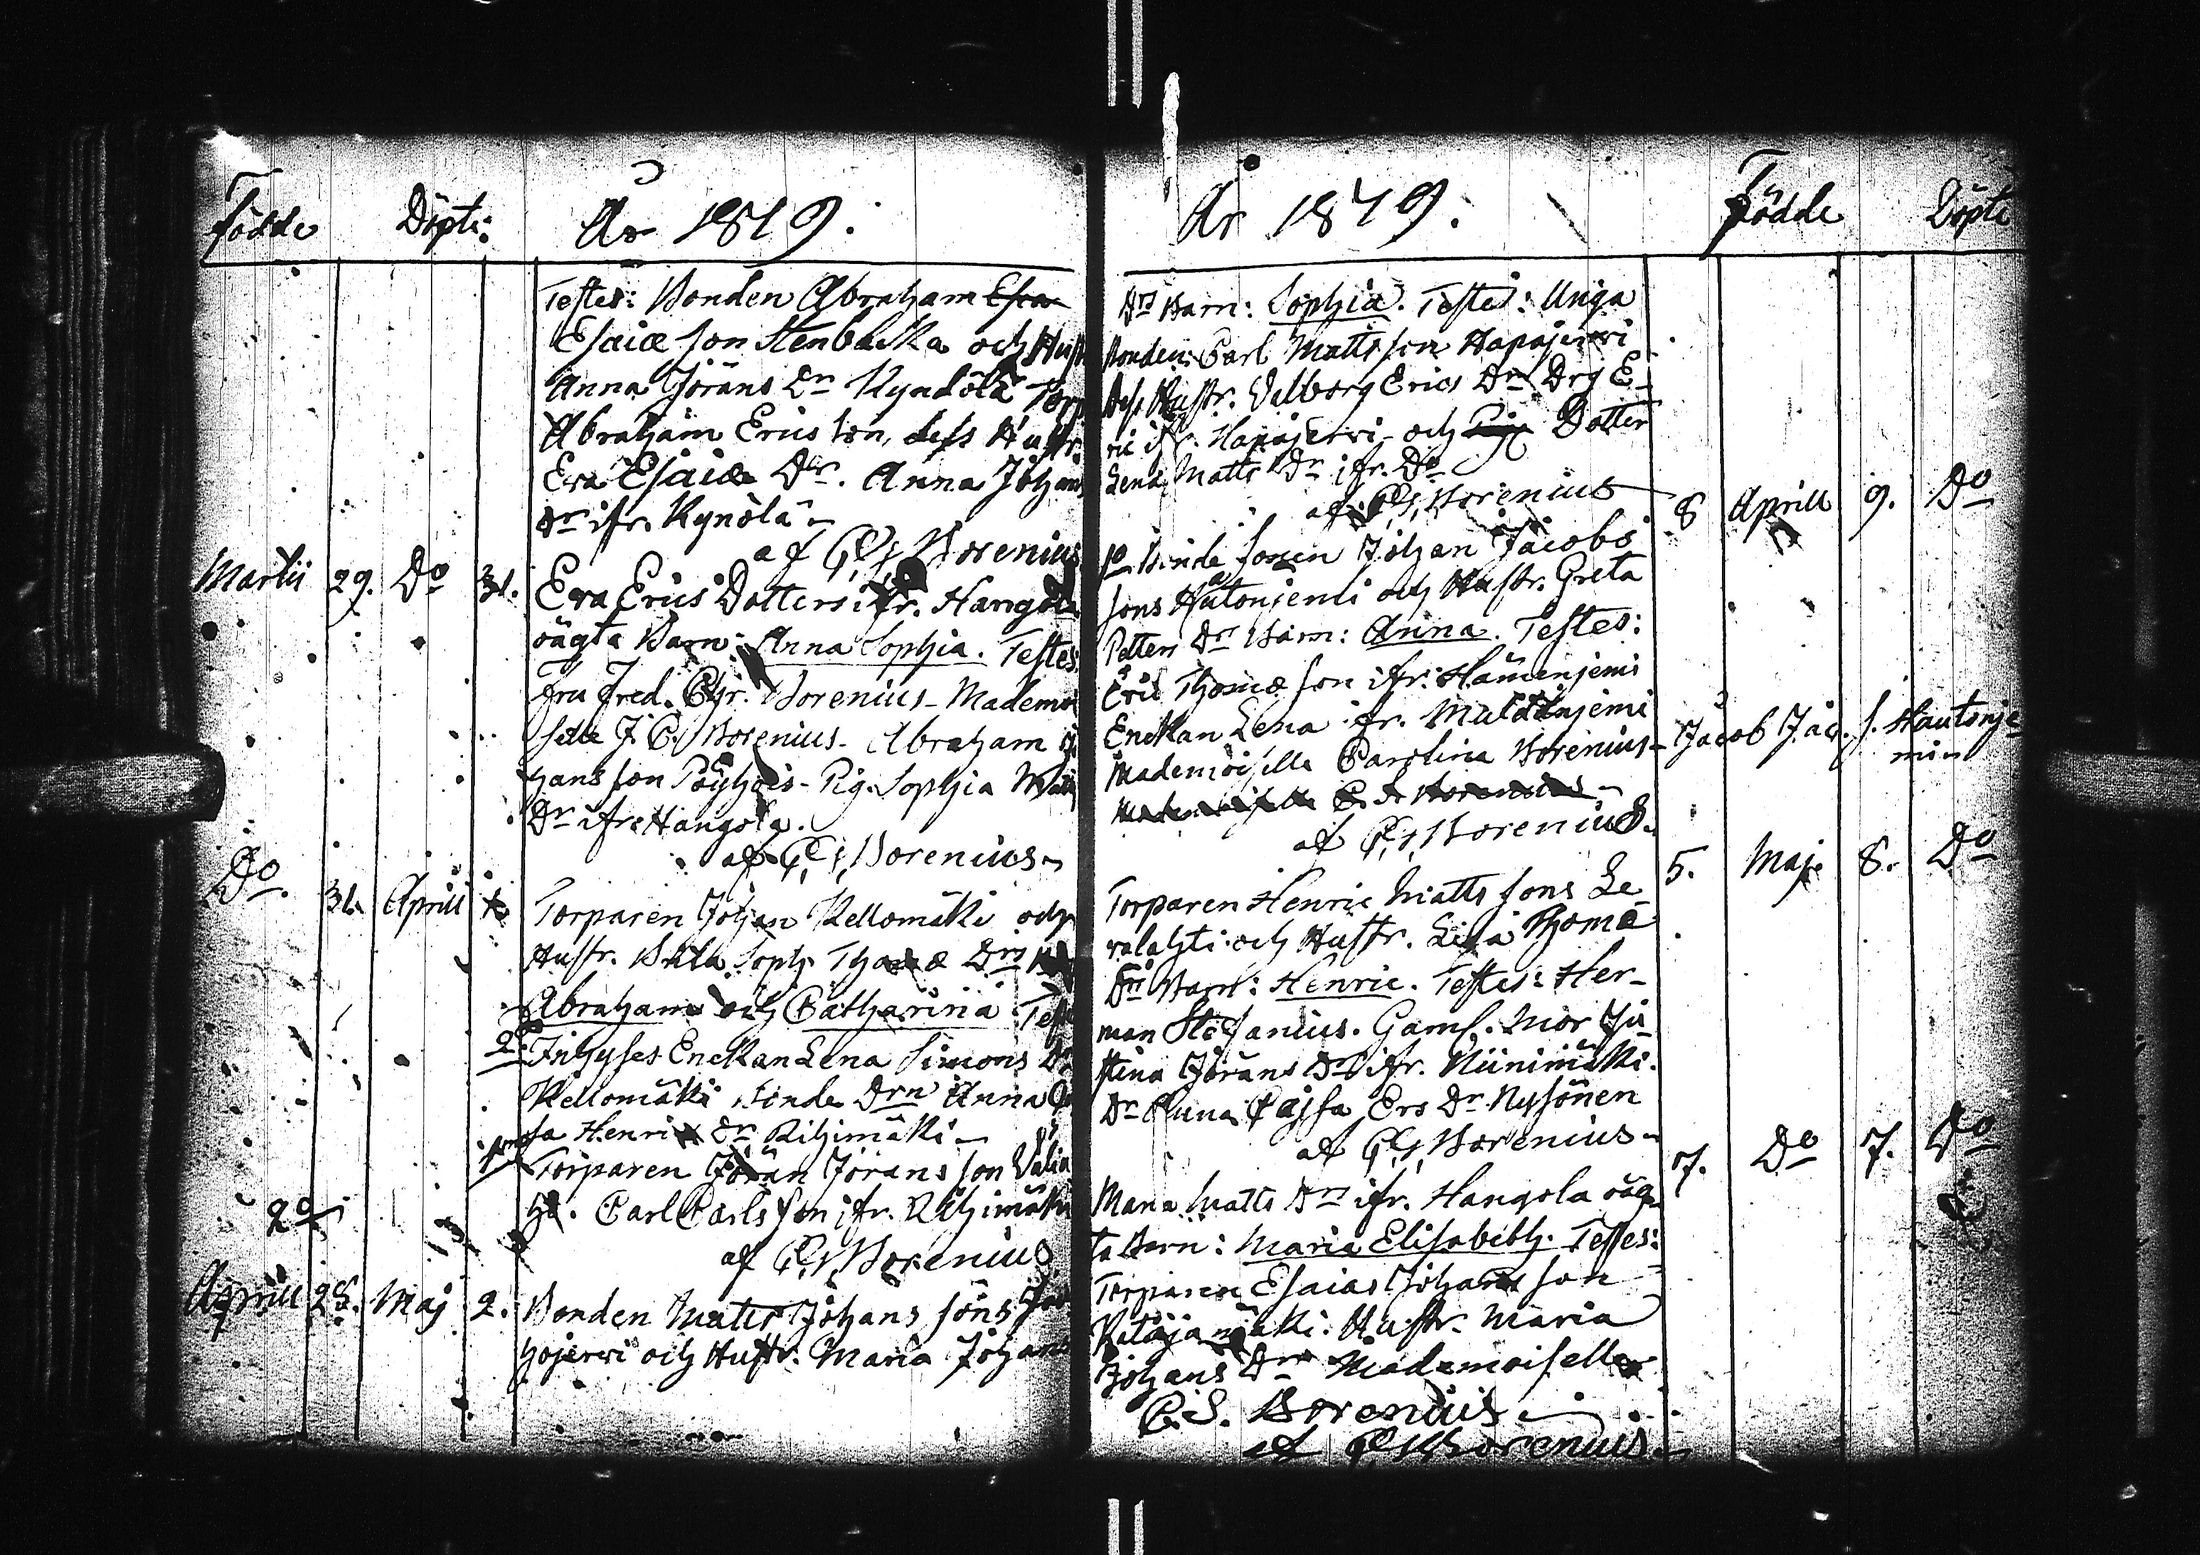 Födde Döpte: År 1819.
Testes: Bonden Abraham Esa
Esaiæ son Stenbacka och Hust
Anna Jörans Dr Kynölä Torp
Abraham Erics son, dess Hustr.
Eva Esaiæ Dr. Anna Johans
Dr ifr. Kynölä
af C. G. Borenius
Martii 29. Do 31. Eva Erics Dotters ifr. Hangola
oägta Barn: Anna Sophia. Testes:
Fru Fred. Chr. Borenius - Mademoi
selle J. C. Borenius - Abraham Jo
hans son Pöyhöis - Pig. Sophia Matts
Dr ifr. Hangola.
af C. G. Borenius
Do. 31. Aprill Torparen Johan Kellomäki och
Hustr. Brita Soph. Thomæ Drs
Abraham och Catharina Test
2. Inhyses Enckan Lena Simons Dr
Kellomäki Binde Drn Anna
sa Henrics Dr Riihimäki
1. Torparen Jöran Jörans son Välia
ho. Carl Carls son ifr. Riihimäki
af C. G. Borenius
Aprill 28. Maj 2. Bonden Matts Johans sons
hojerwi och Hustr. Maria Johans
År 1819. Födde Döpte
Drs Barn: Sophia. Testes: Unga
Bonden Carl Matts son Hapajerwi
dess Hustr. Valborg Erics Dr Drg E-
ric ifr. Hapajerwi och Pige Dotter
Lena Matts Dr ifr. Do
af C. G. Borenius
Binde sonen Johan Jacobs 8 Aprill 9. Do
sons Hautonjemi och Hustr. Greta
Petters Drs Barn: Anna. Testes:
Eric Thomæ son ifr. Hämenjemi
Enckan Lena ifr.
Mademoiselle Carolina Borenius - Jacob Jac. s. Hautonje
mi
Mademoiselle C. S. Borenius
af C. G. Borenius.
Torparen Henric Matts sons Le- 5. Maj. 8. Do
valahti och Hustr. Lisa Thomæ
Drs Barn: Henric. Testes: Her-
man Stefanius. Gaml. Mor Ju
stina Jörans Dr ifr. Niinimäki.
Dr Anna Cajsa Ers Dr Nysönen
af C. G. Borenius
Maria Matts Drs ifr. Hangola oäg- 7. Do 7. Do
ta Barn: Maria Elisabeth. Testes:
Torparen Esaias Johans son
Katajamäki. Hustr. Maria
Johans Dr Mademoiselle
C. S. Borenius
af C. G. Borenius